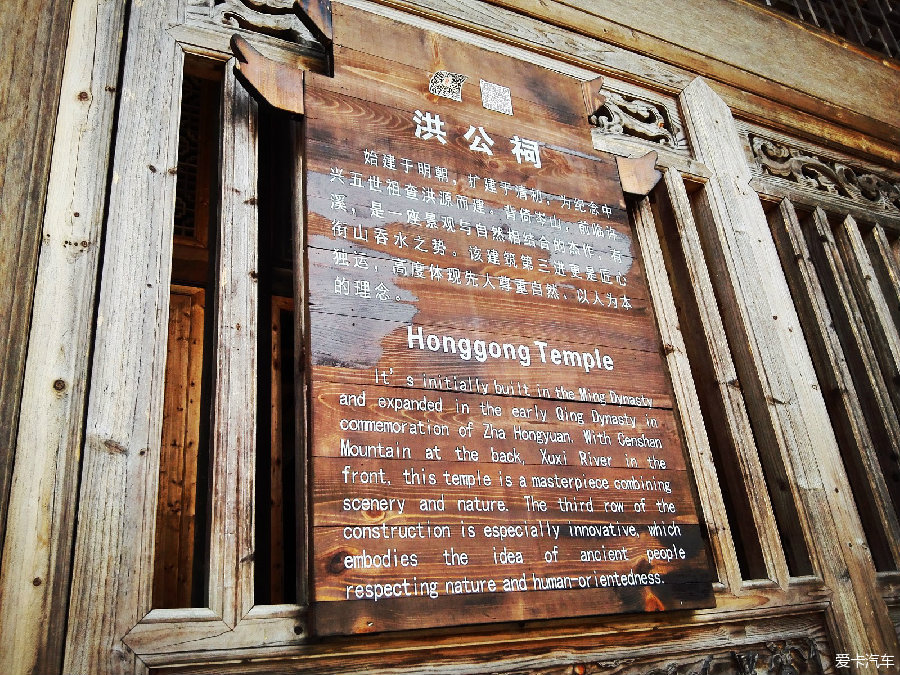 洪公祠
始建于明朝，扩建于清初，为纪念中
兴五世祖查洪源而建。背倚岑山，前临浒
溪，是一座景观与自然相结合的杰作，有
衔山吞水之势。该建筑第三进更是匠心
独运，高度体现先人尊重自然、以人为本
的理念。
Honggong Temple
It's initially built in the Ming Dynasty
and expanded in the early Qing Dynasty in
commemoration of Zha Hongyuan. With Censhan
Mountain at the back, Xuxi River in the
front, this temple is a masterpiece combining
scenery and nature. The third row of the
construction is especially innovative, which
embodies the idea of ancient people
respecting nature and human-orientedness.
爱卡汽车